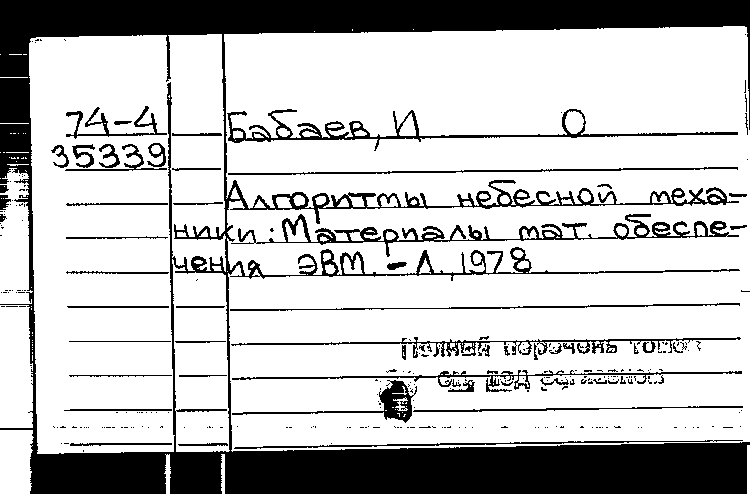 74-4 Бабаев, И О
35339
Алгоритмы небесной меха-
ники: Материалы мат. обеспе-
чения ЭВМ. - Л., 1978.
Полный перечень томов
см. под заглавием